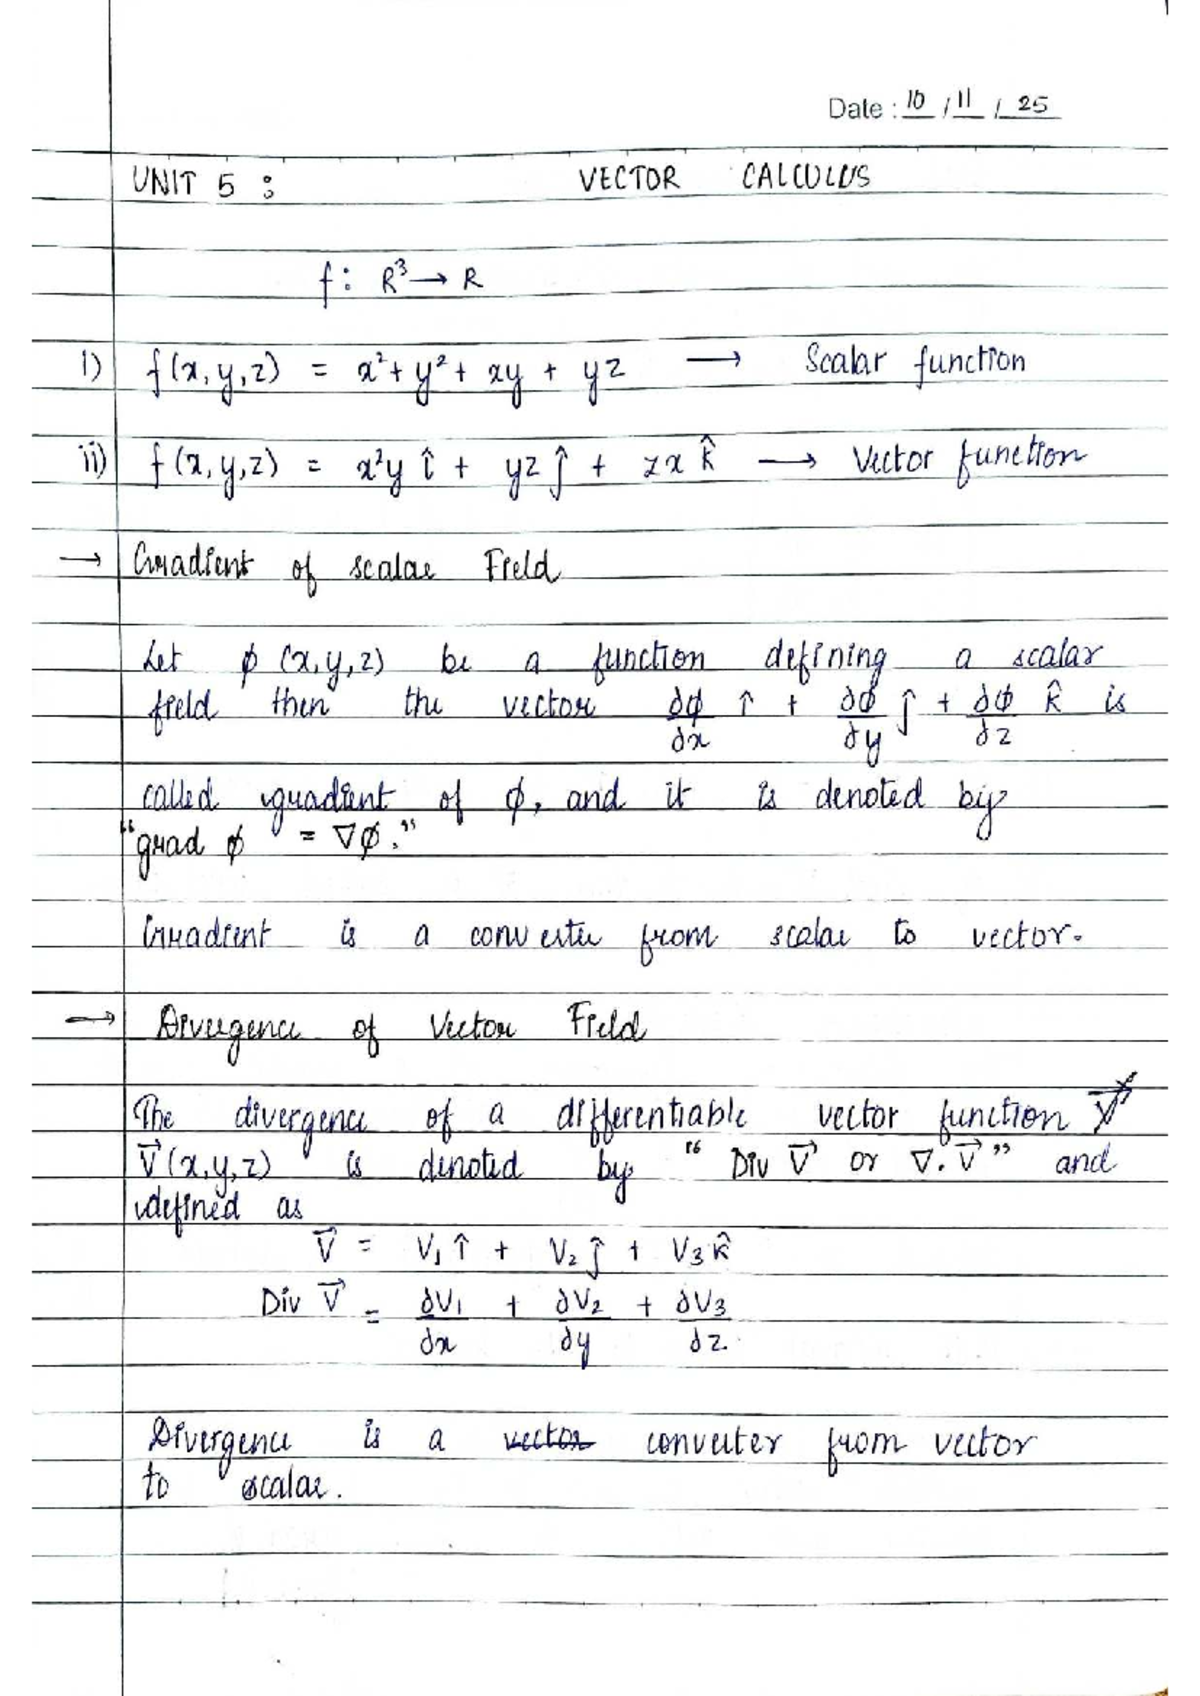 Date : 10 / 11 / 25
UNIT 5 : VECTOR CALCULUS
f : R³ → R
i) f(x,y,z) = x² + y² + xy + yz → Scalar function
ii) f(x,y,z) = x²y î + yz ĵ + zx k̂ → Vector function
→ Gradient of scalar Field
Let φ (x,y,z) be a function defining a scalar
field then the vector ∂φ/∂x î + ∂φ/∂y ĵ + ∂φ/∂z k̂ is
called gradient of φ, and it is denoted by
"grad φ = ∇φ."
Gradient is a converter from scalar to vector.
→ Divergence of Vector Field
The divergence of a differentiable vector function V⃗
V⃗(x,y,z) is denoted by "Div V⃗ or ∇.V⃗" and
defined as
V⃗ = V₁ î + V₂ ĵ + V₃ k̂
Div V⃗ = ∂V₁/∂x + ∂V₂/∂y + ∂V₃/∂z.
Divergence is a vector converter from vector
to scalar.